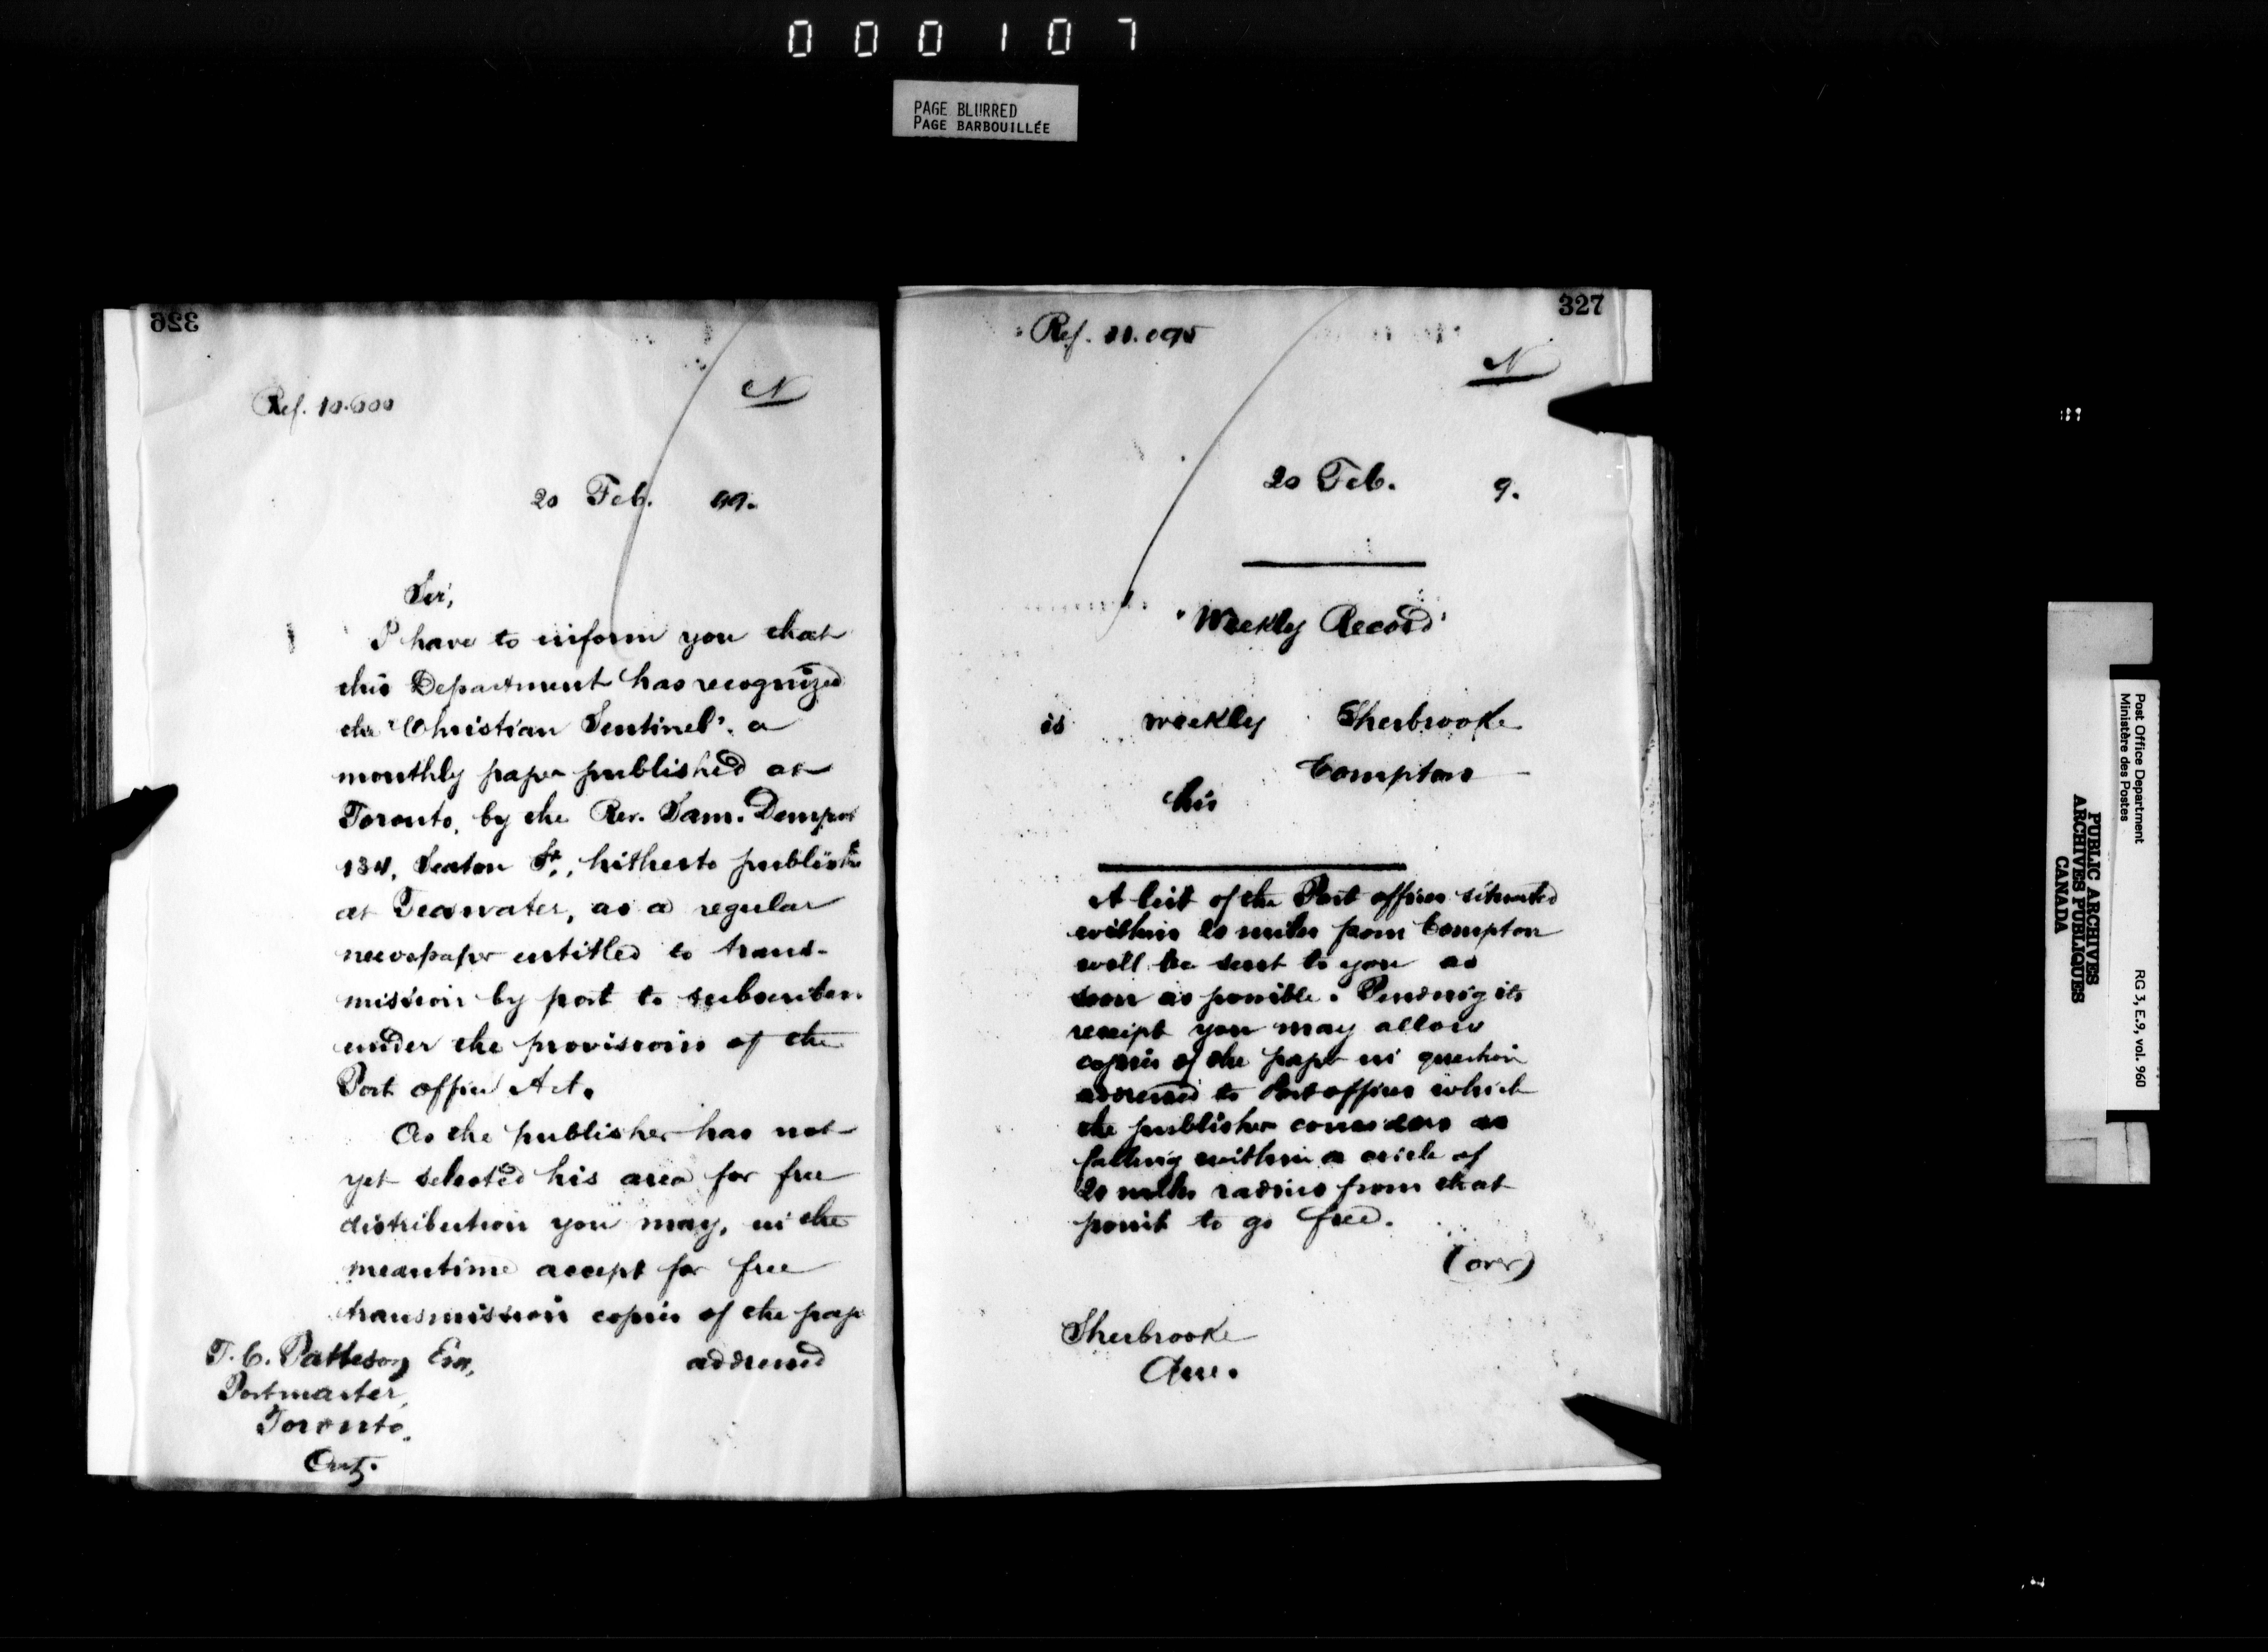 000107
PAGE BLURRED
PAGE BARBOUILLÉE
326
Ref. 10.600
N
20 Feb. 99.
Sir,
I have to inform you that
this Department has recognized
the "Christian Sentinel", a
monthly paper published at
Toronto, by the Rev. Sam.
134, Seaton St., hitherto published
at Teeswater, as a regular
newspaper entitled to trans-
mission by post to subscribers
under the provisions of the
Post office Act.
As the publisher has not
yet selected his area for free
distribution you may, in the
meantime accept for free
transmission copies of the paper
addressed
T. C. Patteson, Esq,
Postmaster,
Toronto,
Ont.
327
Ref. 11.095
N
20 Feb. 9.
"Weekly Record"
is weekly Sherbrooke
Compton
his
A list of the Post offices situated
within 20 miles from Compton
will be sent to you as
soon as possible. Pending its
receipt you may allow
copies of the paper in question
addressed to Post offices which
the publisher considers as
falling within a circle of
20 miles radius from that
point to go free.
(over)
Sherbrooke
Que.
Post Office Department
Ministère des Postes
RG 3, E.9, vol. 960
PUBLIC ARCHIVES
ARCHIVES PUBLIQUES
CANADA